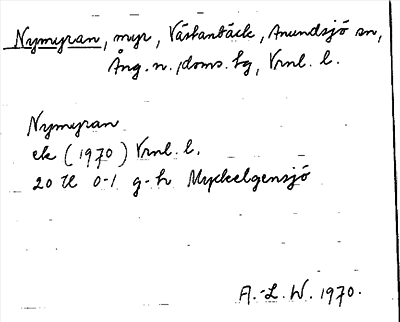 Nymyran, myr, Västanbäck, Anundsjö sn,
Ång. n. doms. hg, Vrnl. l.
Nymyran
ek (1970) Vrnl. l.
20 H 0-1 g-h Myckelgensjö
A.-L. W. 1970.